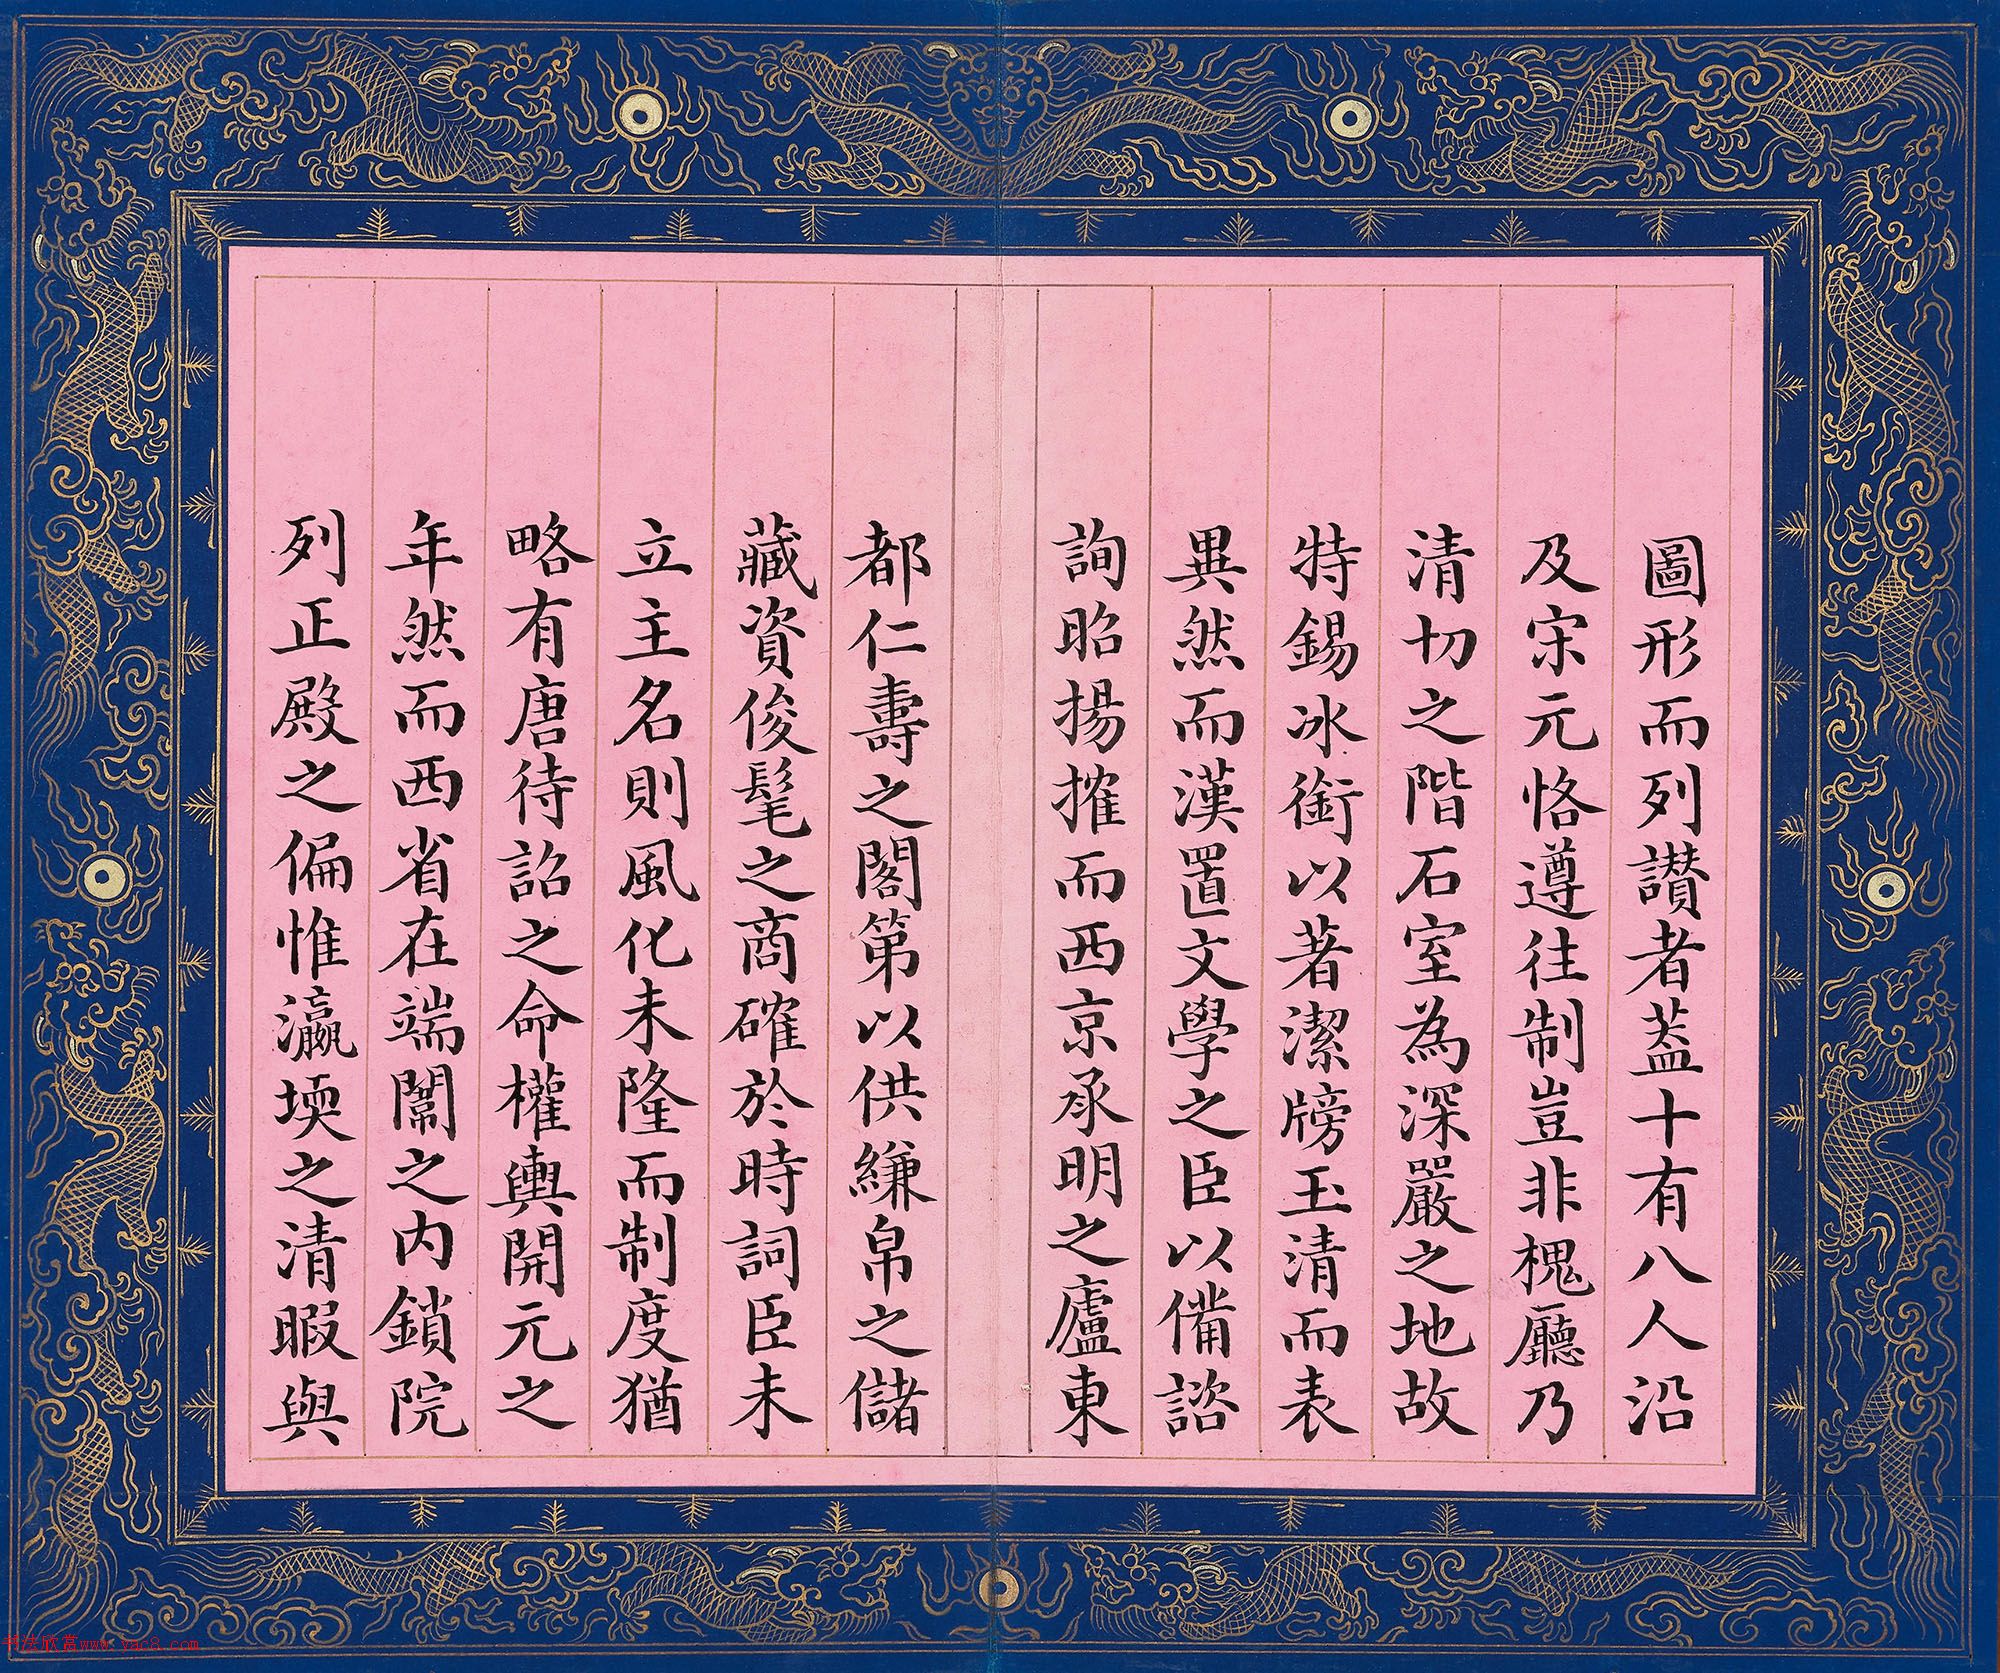 圖形而列讃者葢十有八人沿
及宋元恪遵往制豈非槐廳乃
清切之階石室為深嚴之地故
特錫冰銜以著潔牓玉清而表
異然而漢置文學之臣以備諮
詢昭揚搉而西京承明之廬東
都仁壽之閣第以供縑帛之儲
藏資俊髦之商確於時詞臣未
立主名則風化未隆而制度猶
略有唐待詔之命權輿開元之
年然而西省在端闈之内鎖院
列正殿之偏惟瀛堧之清暇與
书法欣赏www.yac8.com